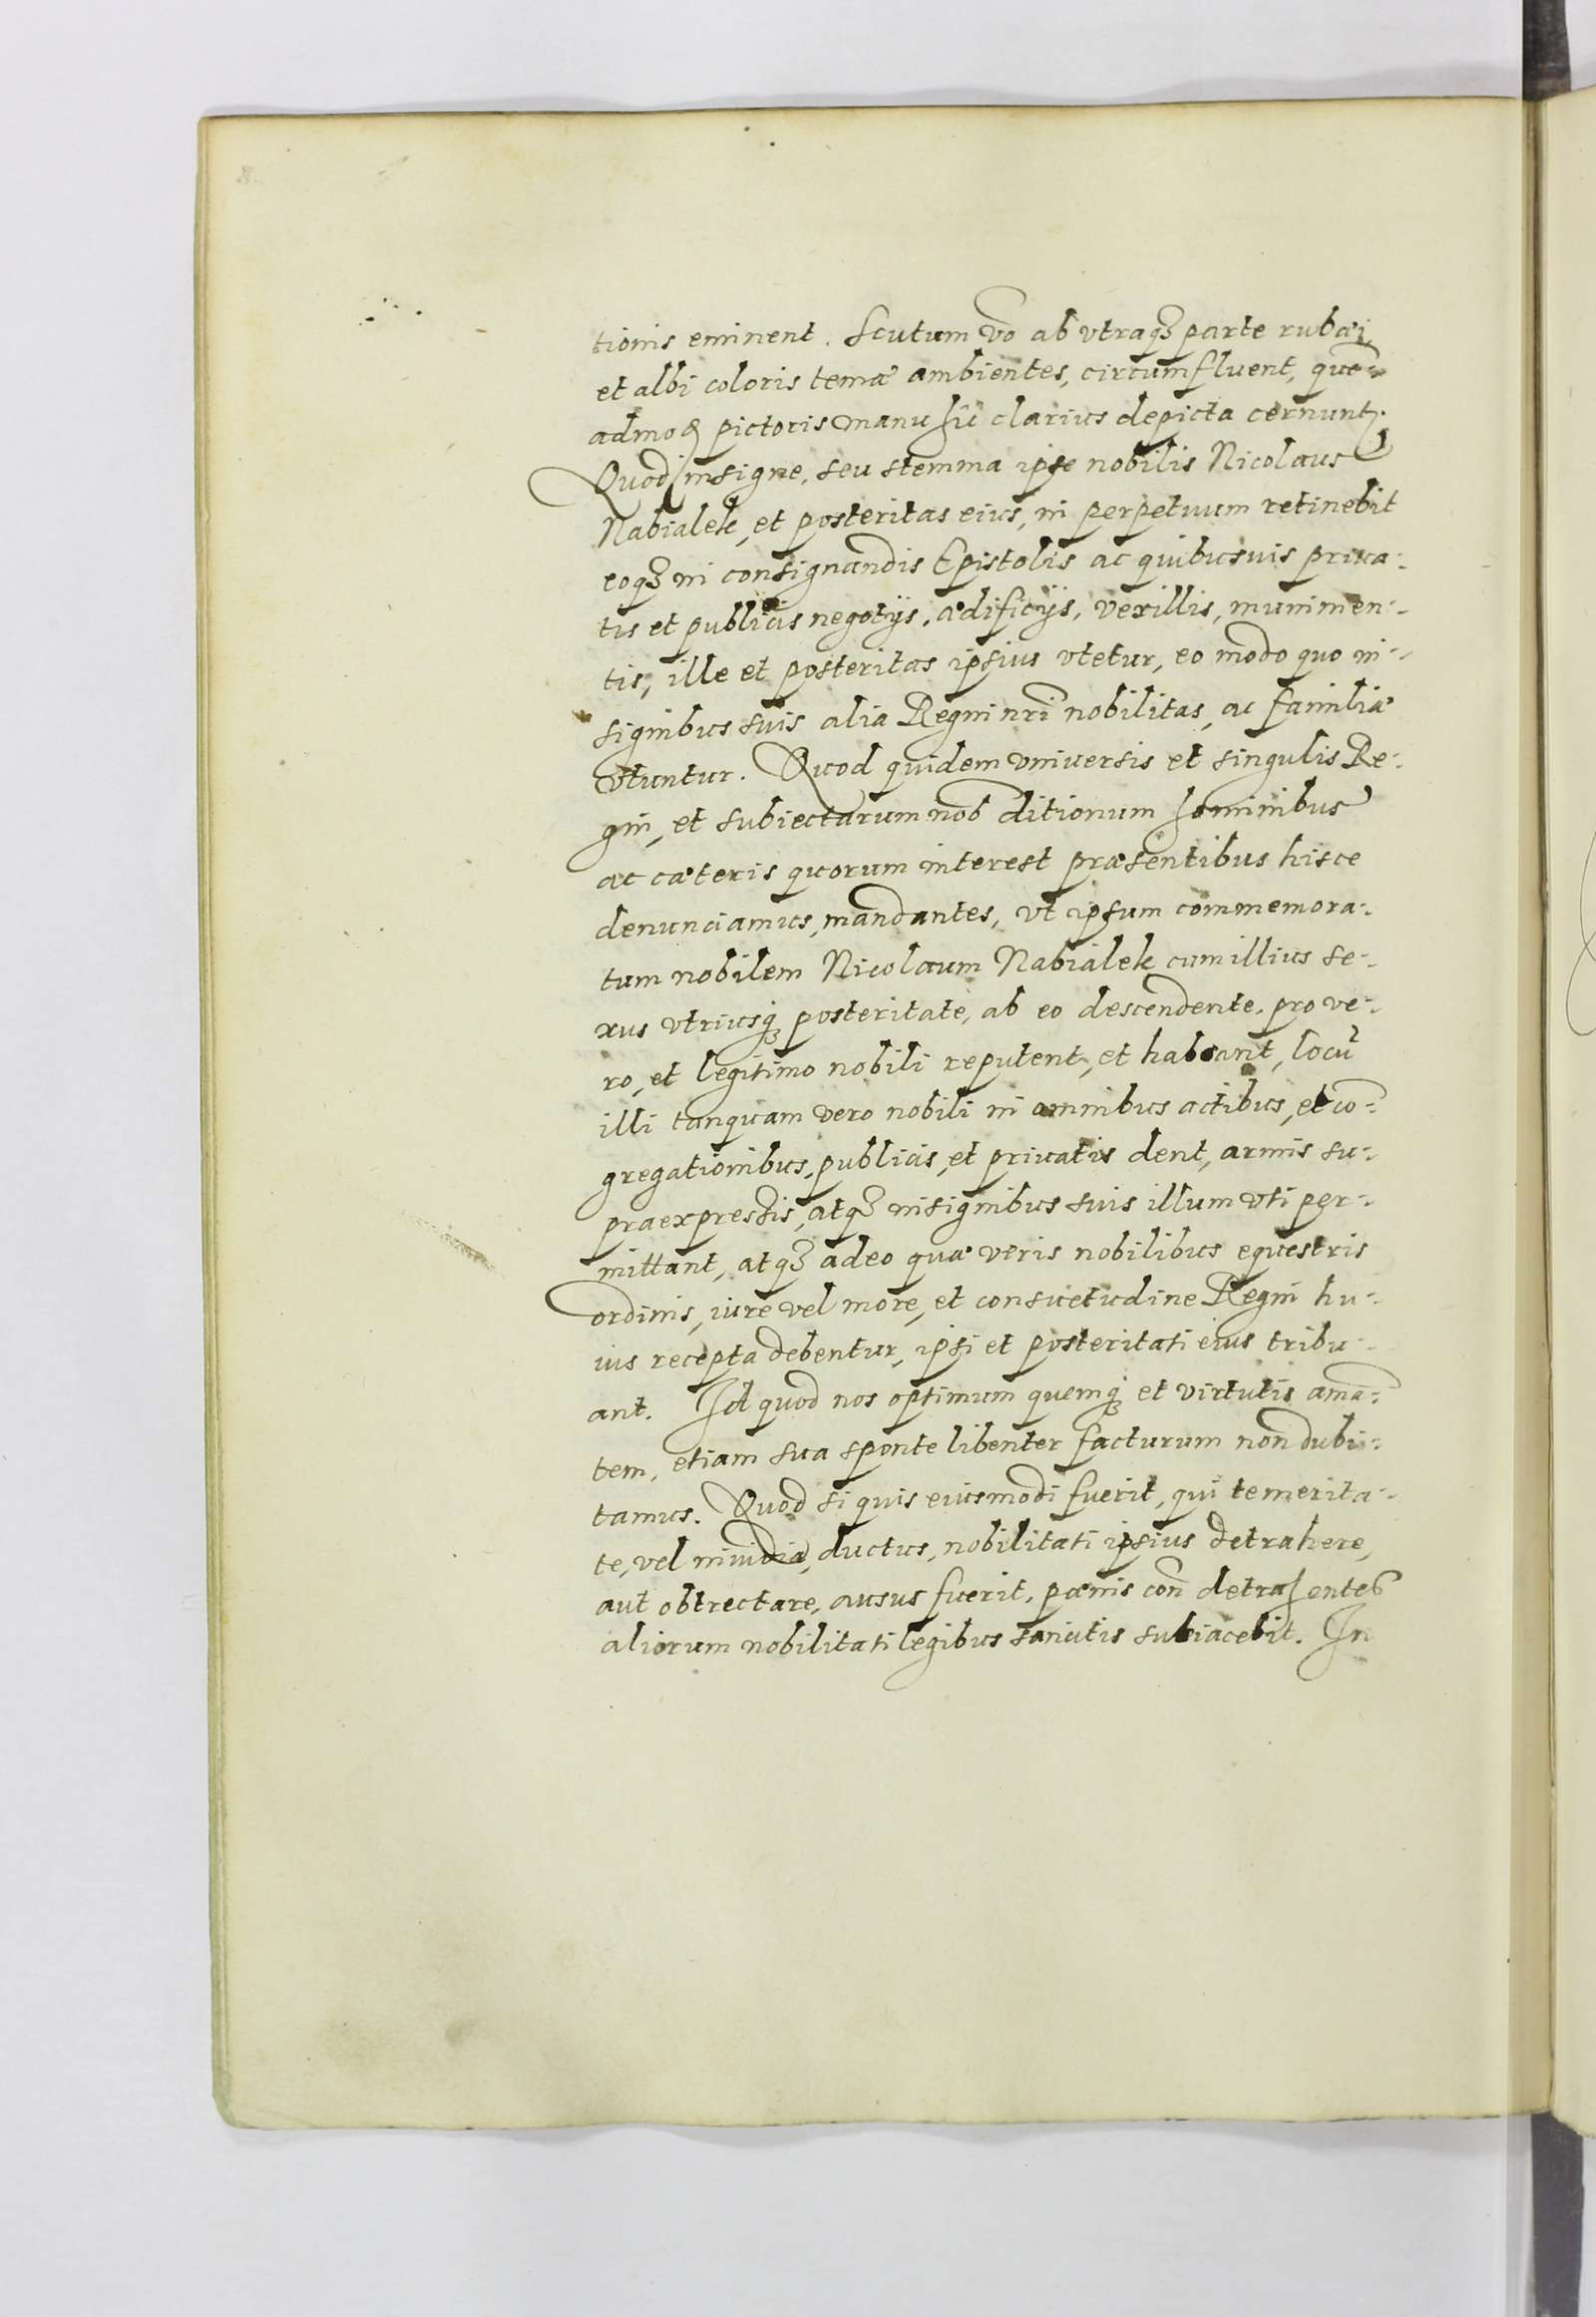 tionis eminent. Scutum vō ab vtraqꝫ parte rubæi,
et albi coloris temæ ambientes, circumfluent, quē-
admoꝗ pictoris manu hîc clarius depicta cernuntꝛ.
Quod insigne, seu stemma ipse nobilis Nicolaus
Nabialek, et posteritas eius, in perpetuum retinebit
eoqꝫ in consignandis Epistolis ac quibusuis priua-
tis et publicis negotijs, ædificijs, vexillis, munimen-
tis, ille et posteritas ipsius vtetur, eo modo quo in-
signibus suis alia Regni nrī nobilitas, ac familiæ
vtuntur. Quod quidem vniuersis et singulis Re-
gni, et subiectarum nob ditionum hominibus
ac cæteris quorum interest præsentibus hisce
denunciamus, mandantes, vt ipsum commemora-
tum nobilem Nicolaum Nabialek cum illius se-
xus vtriusqꝫ posteritate, ab eo descendente, pro ve-
ro, et legitimo nobili reputent, et habeant, locū
illi tanquam vero nobili in omnibus actibus, et cō-
gregationibus, publicis, et priuatis dent, armis su-
praexpressis, atqꝫ insignibus suis illum vti per-
mittant, atqꝫ adeo quæ veris nobilibus equestris
ordinis, iure vel more, et consuetudine Regni hu-
ius recepta debentur, ipsi et posteritati eius tribu-
ant. Id quod nos optimum quemqꝫ et virtutis amā-
tem, etiam sua sponte libenter facturum non dubi-
tamus. Quod si quis eiusmodi fuerit, qui temerita-
te, vel inuidia, ductus, nobilitati ipsius detrahere,
aut obtrectare, ausus fuerit, pænis con̄ detrahentes
aliorum nobilitati legibus sancitis subiacebit. In